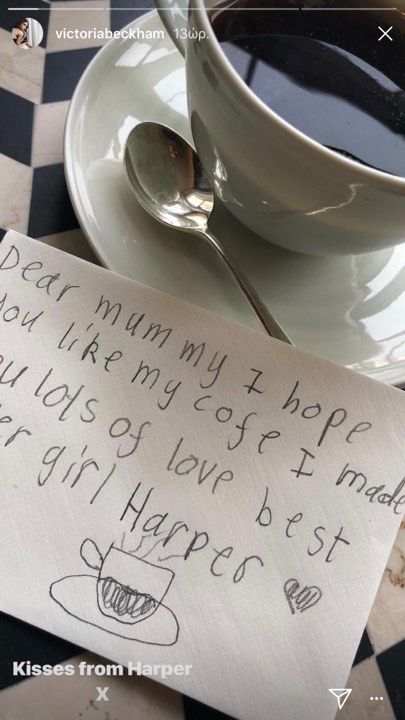 victoriabeckham 13ώρ.
Dear mummy I hope
you like my cofe I made
lots of love best
girl Harper
Kisses from Harper
X